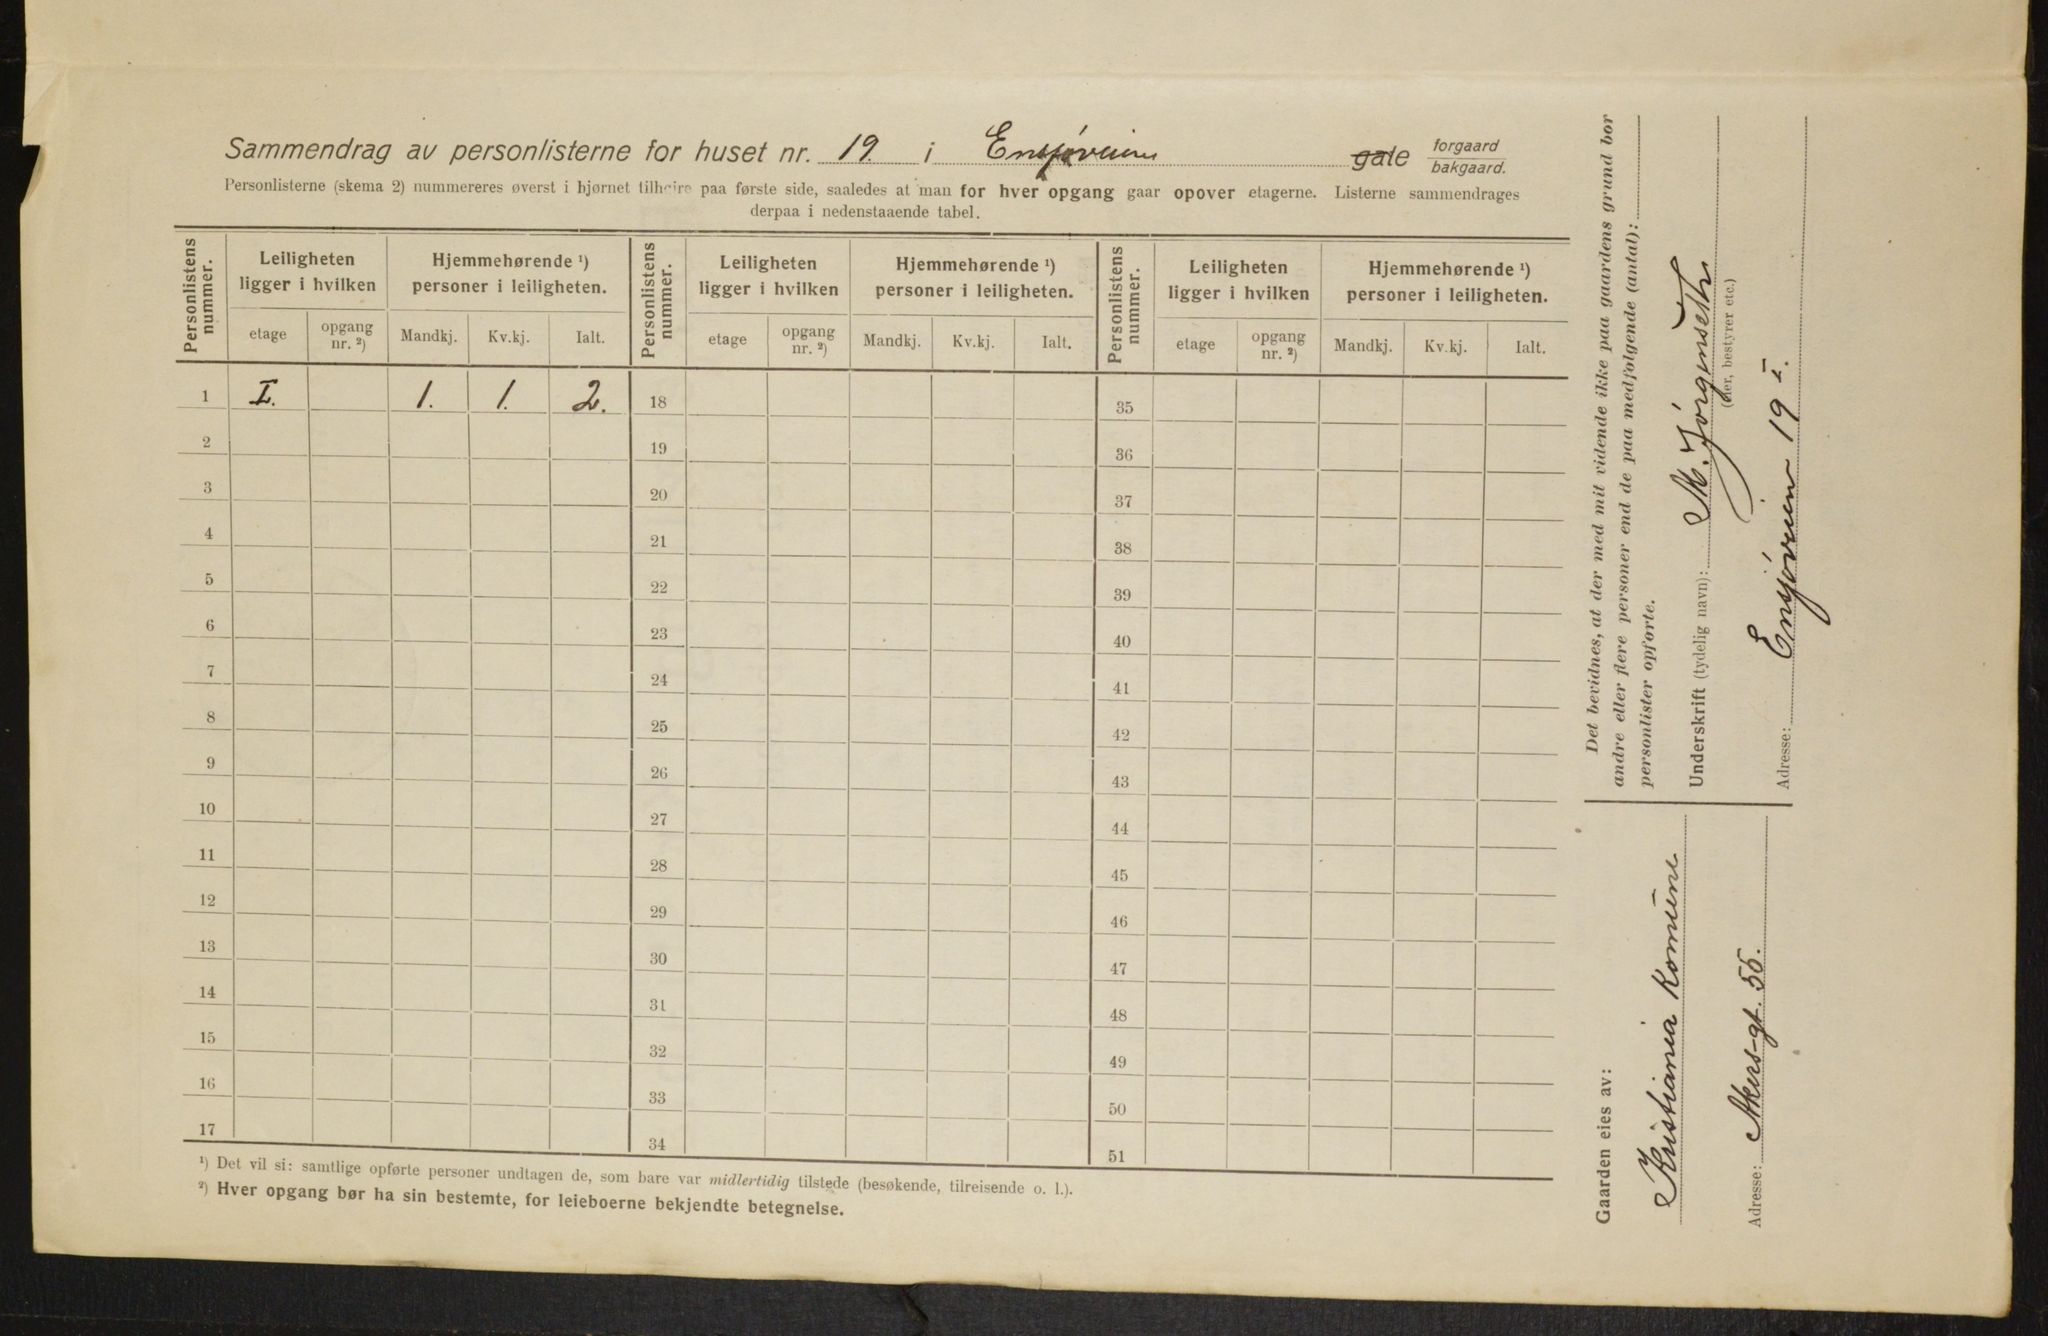 Sammendrag av personlisterne for huset nr. 19. i Ensjøveien gate forgaard bakgaard.
Personlisterne (skema 2) nummereres øverst i hjørnet tilhøire paa første side, saaledes at man for hver opgang gaar opover etagerne. Listerne sammendrages
derpaa i nedenstaaende tabel.
Personlistens nummer. Leiligheten ligger i hvilken Hjemmehørende ¹) personer i leiligheten. Personlistens nummer. Leiligheten ligger i hvilken Hjemmehørende ¹) personer i leiligheten. Personlistens nummer. Leiligheten ligger i hvilken Hjemmehørende ¹) personer i leiligheten.
etage opgang nr. ²) Mandkj. Kv.kj. Ialt. etage opgang nr. ²) Mandkj. Kv.kj. Ialt. etage opgang nr. ²) Mandkj. Kv.kj. Ialt.
1 I. 1. 1. 2. 18 35
2 19 36
3 20 37
4 21 38
5 22 39
6 23 40
7 24 41
8 25 42
9 26 43
10 27 44
11 28 45
12 29 46
13 30 47
14 31 48
15 32 49
16 33 50
17 34 51
¹) Det vil si: samtlige opførte personer undtagen de, som bare var midlertidig tilstede (besøkende, tilreisende o. l.).
²) Hver opgang bør ha sin bestemte, for leieboerne bekjendte betegnelse.
Gaarden eies av:
Kristiania Komune
Adresse: Akers-gt. 55.
Det bevidnes, at der med mit vidende ikke paa gaardens grund bor
andre eller flere personer end de paa medfølgende (antal):
personlister opførte.
Underskrift (tydelig navn): M. Jørgenseth
(eier, bestyrer etc.)
Adresse: Ensjøveien 19 I.